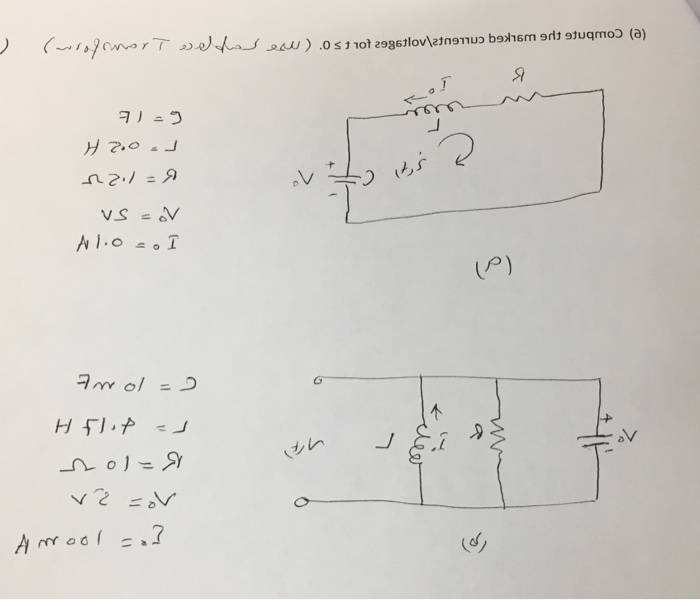 (6) Compute the marked currents/voltages for t ≥ 0. (use Laplace Transform)
R
I₀
L
i(t)
C
+
-
V₀
C = 1F
L = 0.5 H
R = 1.5 Ω
V₀ = 2V
I₀ = 0.1A
(a)
V₀
+
-
R
I₀
L
V(t)
C = 10 mF
R = 10 Ω
I₀ = 100 mA